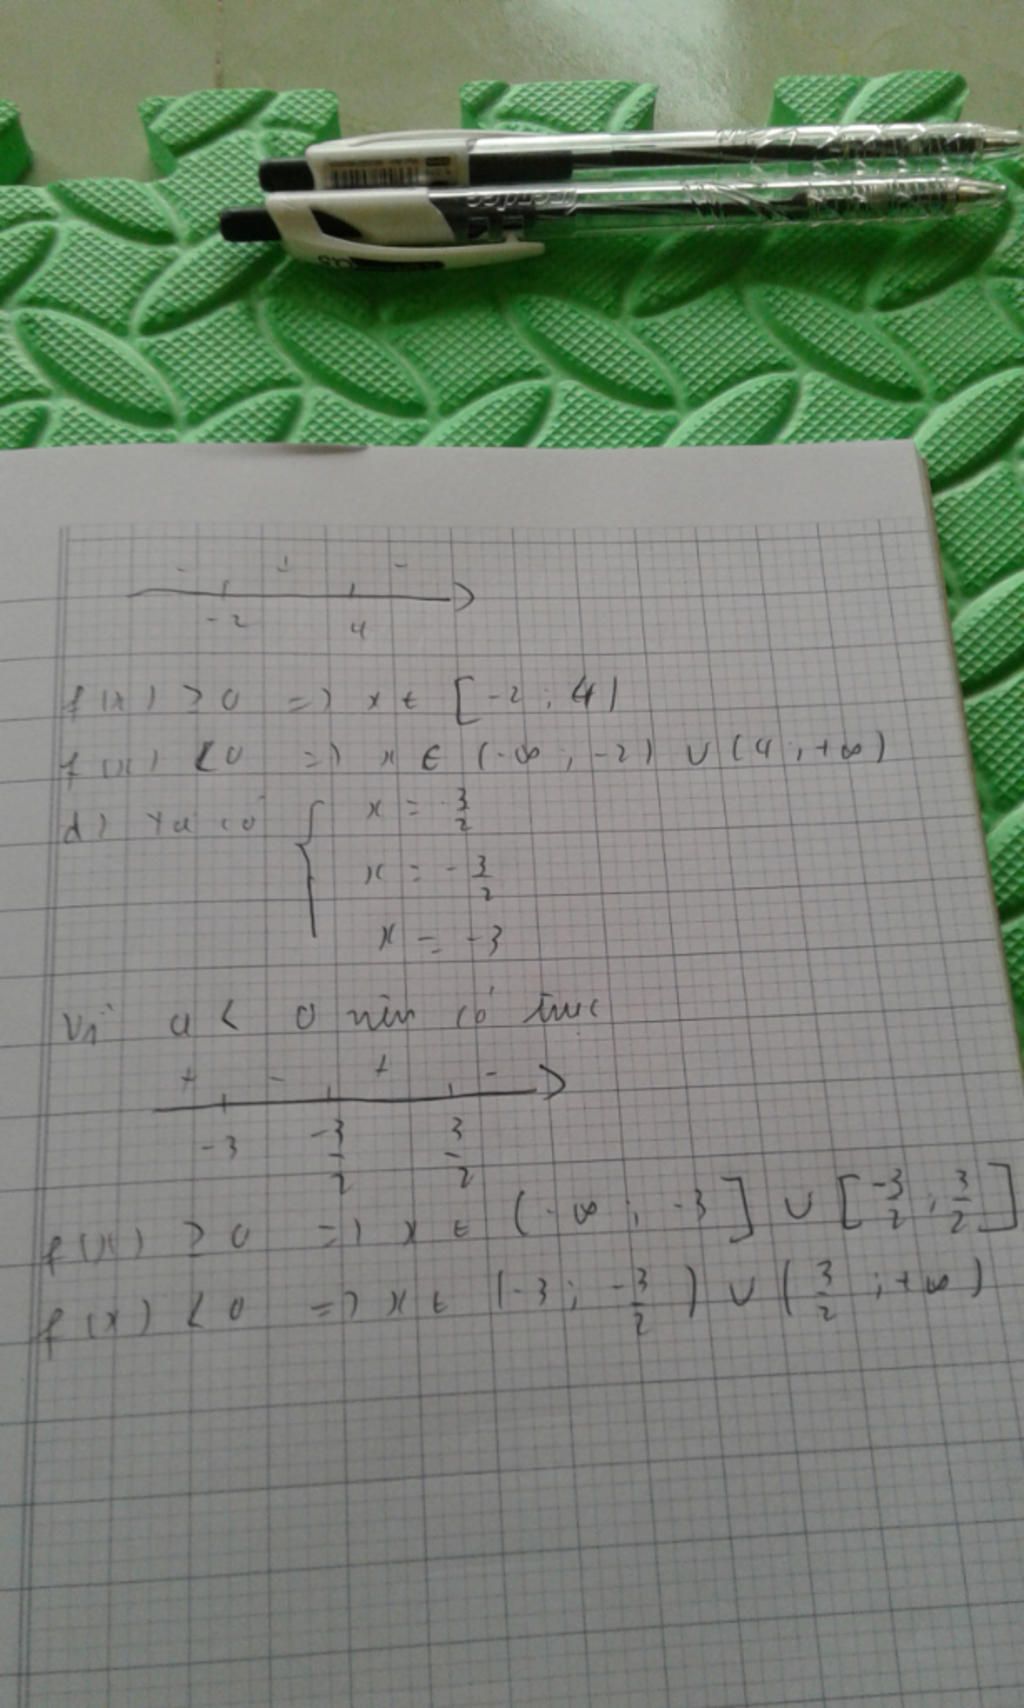 - + -
-2 4
f(x) ≥ 0 => x ∈ [-2 ; 4)
f(x) < 0 => x ∈ (-∞ ; -2) ∪ (4 ; +∞)
d) Ta có { x = 3/2
x = -3/2
x = -3
Vì a < 0 nên có trục
+ - + -
-3 -3/2 3/2
f(x) ≥ 0 => x ∈ (-∞ ; -3] ∪ [-3/2 ; 3/2]
f(x) < 0 => x ∈ (-3 ; -3/2) ∪ (3/2 ; +∞)